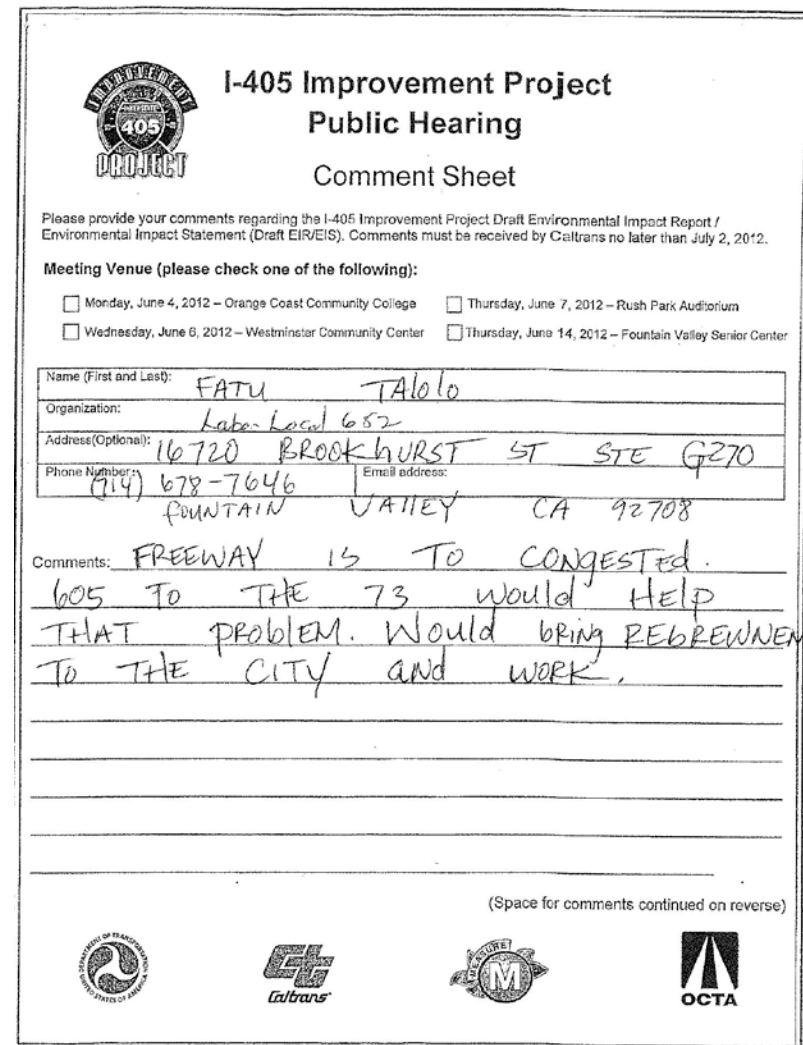 IMPROVEMENT
INTERSTATE
405
PROJECT
I-405 Improvement Project
Public Hearing
Comment Sheet
Please provide your comments regarding the I-405 Improvement Project Draft Environmental Impact Report /
Environmental Impact Statement (Draft EIR/EIS). Comments must be received by Caltrans no later than July 2, 2012.
Meeting Venue (please check one of the following):
Monday, June 4, 2012 – Orange Coast Community College
Thursday, June 7, 2012 – Rush Park Auditorium
Wednesday, June 6, 2012 – Westminster Community Center
Thursday, June 14, 2012 – Fountain Valley Senior Center
Name (First and Last): FATU TAlolo
Organization: Labor Local 652
Address(Optional): 16720 BROOKhURST ST STE G270
Phone Number: (714) 678-7646 Email address:
FOUNTAIN VAllEY CA 92708
Comments: FREEWAY IS TO CONGESTEd.
605 TO THE 73 would HElp
THAT PRObLEM. Would bRiNg REbREWNEN
TO THE CITY aNd WORK.
(Space for comments continued on reverse)
DEPARTMENT OF TRANSPORTATION
UNITED STATES OF AMERICA
Caltrans
MEASURE
M
OCTA